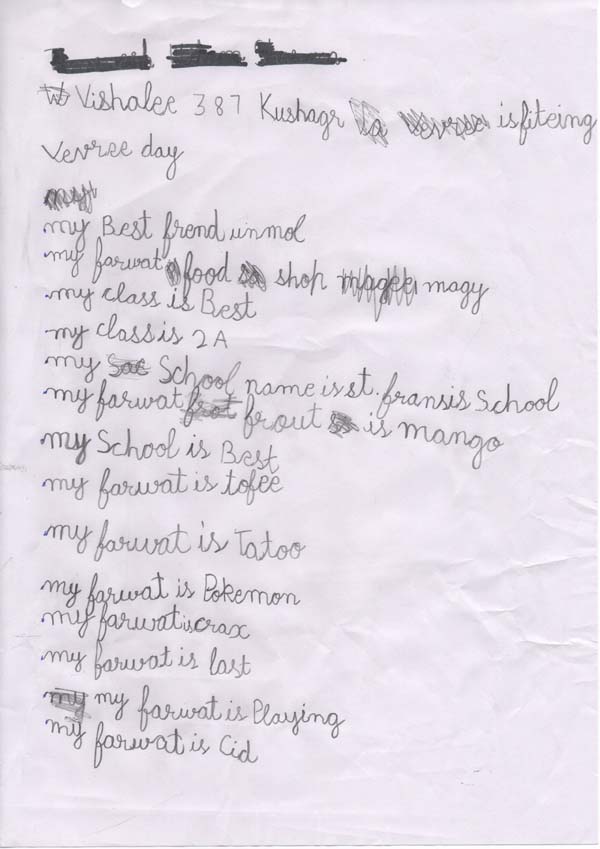 Vishalee 387 Kushagr is fiteing
Vevree day
my Best frend unmol
my farwat food shop magy
my class is Best
my class is 2A
my School name is st. fransis School
my farwat frout is mango
my School is Best
my farwat is tofee
my farwat is Tatoo
my farwat is Pokemon
my farwat is crax
my farwat is last
my farwat is Playing
my farwat is Cid